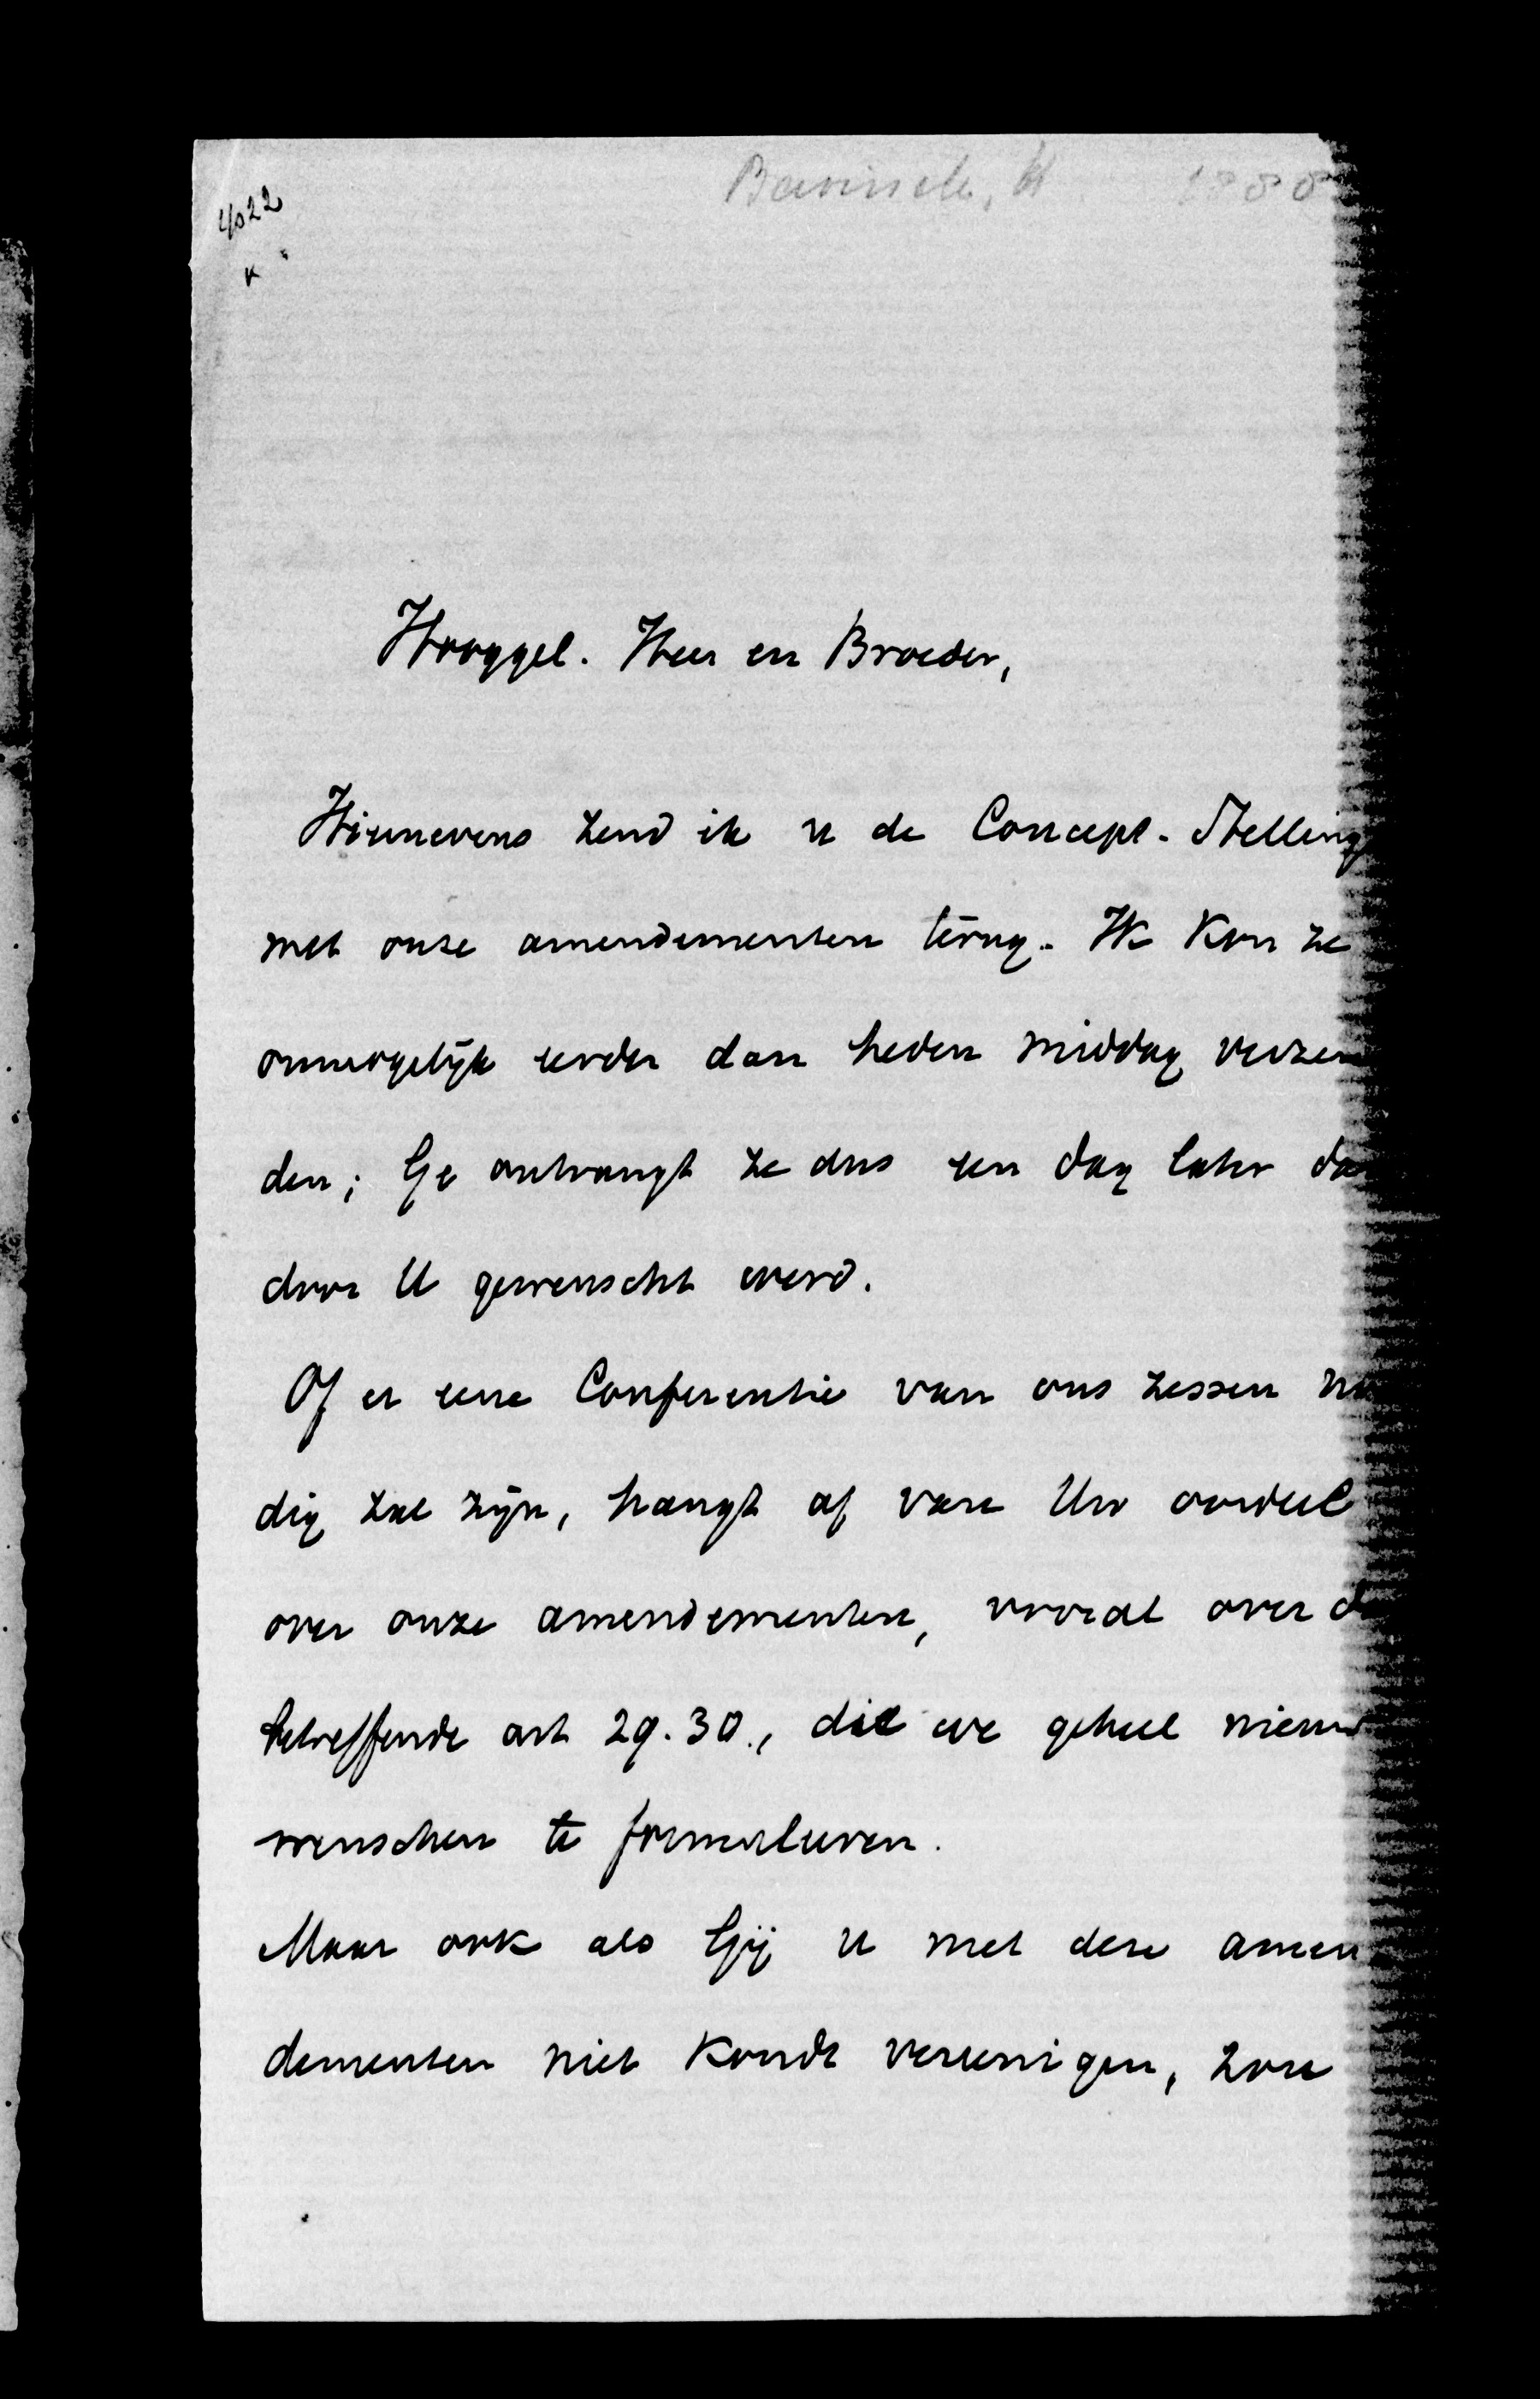 4022
Bavinck, H. 1888
Hooggel. Heer en Broeder,
Hiernevens zend ik u de Concept-Stelling
met onze amendementen terug. Ik kon ze
onmogelijk eerder dan heden middag verzen
den; Ge ontvangt ze dus een dag later da
door U gewenscht werd.
Of er eene Conferentie van ons zessen no
dig zal zijn, hangt af van Uw oordeel
over onze amendementen, vooral over d
betreffende art 29. 30., die we geheel nieuw
wenschen te formuleeren.
Maar ook als Gij u met deze amen
dementen niet kondt vereenigen, zou